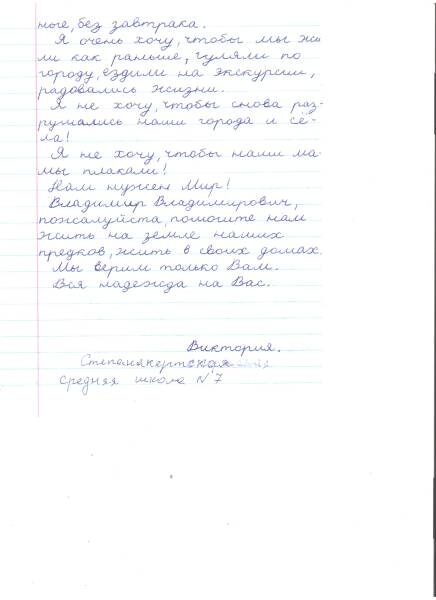 ные, без завтрака.
Я очень хочу, чтобы мы жи
ли как раньше, гуляли по
городу, ездили на экскурсии,
радовались жизни.
Я не хочу, чтобы снова раз-
рушались наши города и сё-
ла!
Я не хочу, чтобы наши ма-
мы плакали!
Нам нужен Мир!
Владимир Владимирович,
пожалуйста, помогите нам
жить на земле наших
предков, жить в своих домах.
Мы верим только Вам.
Вся надежда на Вас.
Виктория.
Степанакертская
средняя школа N7